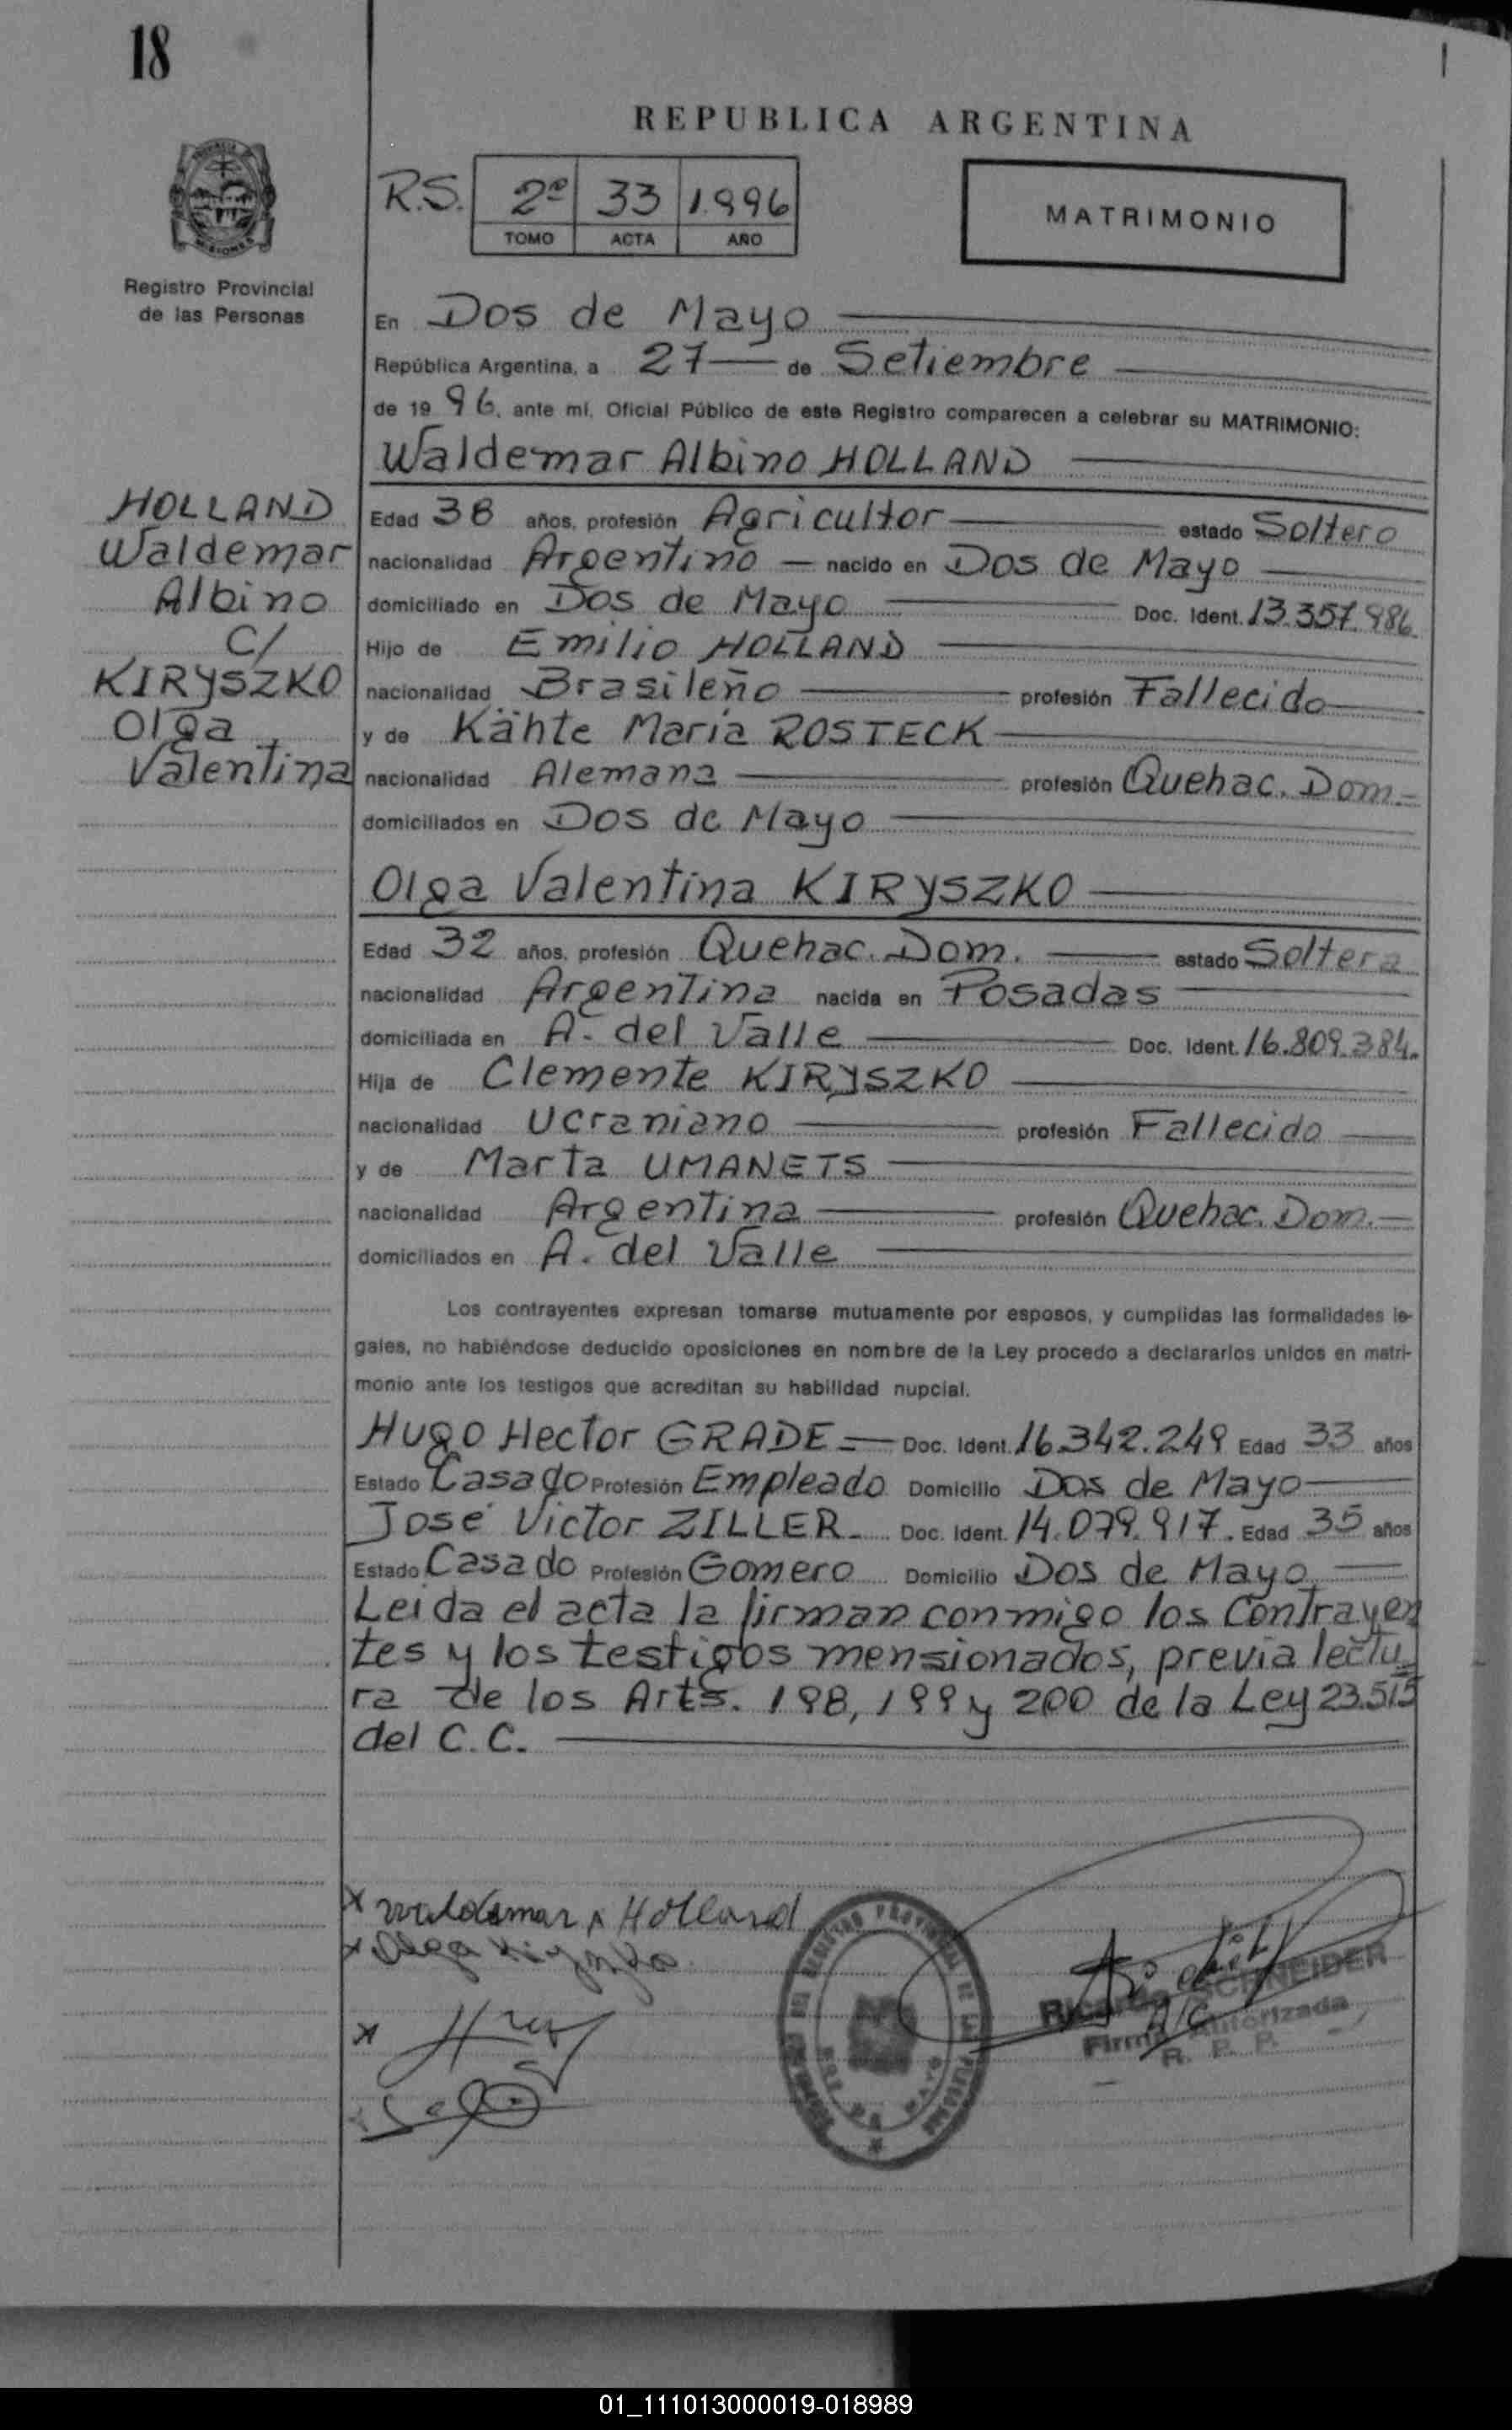 18
REPUBLICA ARGENTINA
R.S. 2º 33 1.996
TOMO ACTA AÑO
MATRIMONIO
Registro Provincial
de las Personas
En Dos de Mayo
República Argentina, a 27 de Setiembre
de 19 96, ante mí, Oficial Público de este Registro comparecen a celebrar su MATRIMONIO:
Waldemar Albino HOLLAND
HOLLAND
Waldemar
Albino
C/
KIRYSZKO
Olga
Valentina
Edad 38 años, profesión Agricultor estado Soltero
nacionalidad Argentino nacido en Dos de Mayo
domiciliado en Dos de Mayo Doc. Ident. 13.357.986
Hijo de Emilio HOLLAND
nacionalidad Brasileño profesión Fallecido
y de Kähte María ROSTECK
nacionalidad Alemana profesión Quehac. Dom.
domiciliados en Dos de Mayo
Olga Valentina KIRYSZKO
Edad 32 años, profesión Quehac. Dom. estado Soltera
nacionalidad Argentina nacida en Posadas
domiciliada en A. del Valle Doc. Ident. 16.809.384.
Hija de Clemente KIRYSZKO
nacionalidad Ucraniano profesión Fallecido
y de Marta UMANETS
nacionalidad Argentina profesión Quehac. Dom.
domiciliados en A. del Valle
Los contrayentes expresan tomarse mutuamente por esposos, y cumplidas las formalidades le-
gales, no habiéndose deducido oposiciones en nombre de la Ley procedo a declararlos unidos en matri-
monio ante los testigos que acreditan su habilidad nupcial.
Hugo Hector GRADE Doc. Ident. 16.342.249 Edad 33 años
Estado Casado Profesión Empleado Domicilio Dos de Mayo
José Victor ZILLER Doc. Ident. 14.079.917. Edad 35 años
Estado Casado Profesión Gomero Domicilio Dos de Mayo
Leida el acta la firman conmigo los Contrayen
tes y los testigos mensionados, previa lectu
ra de los Arts. 198, 199 y 200 de la Ley 23.515
del C.C.
x Waldemar A Holland
x Olga
x
Ricardo SCHNEIDER
A/C
Firma Autorizada
R. P. P.
01_111013000019-018989